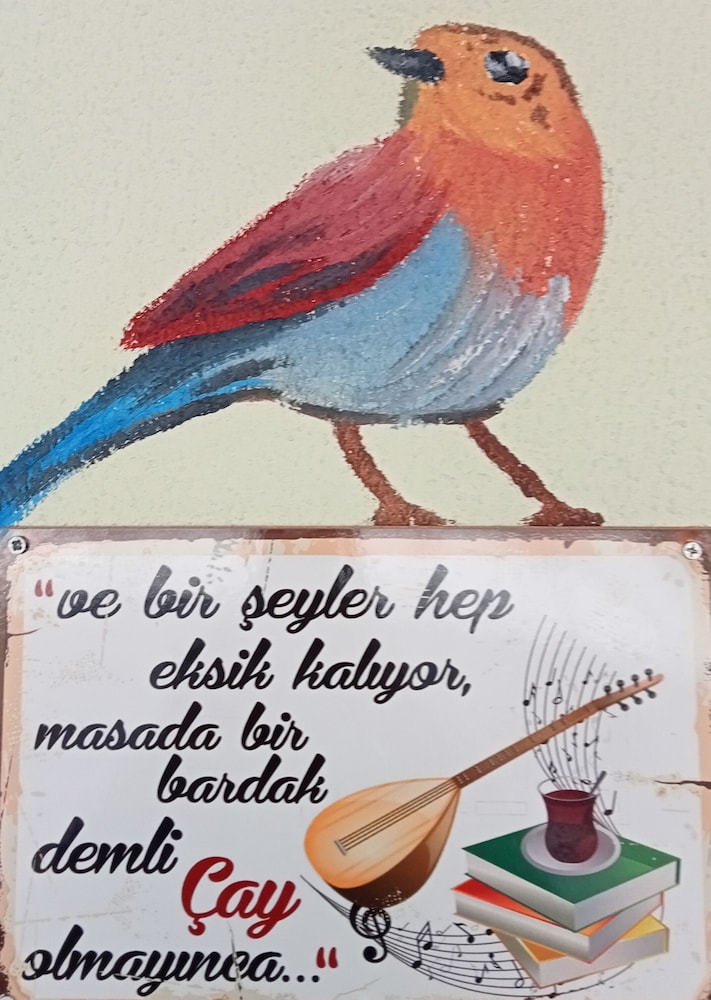 “ve bir şeyler hep
eksik kalıyor,
masada bir
bardak
demli
Çay
olmayınca...“